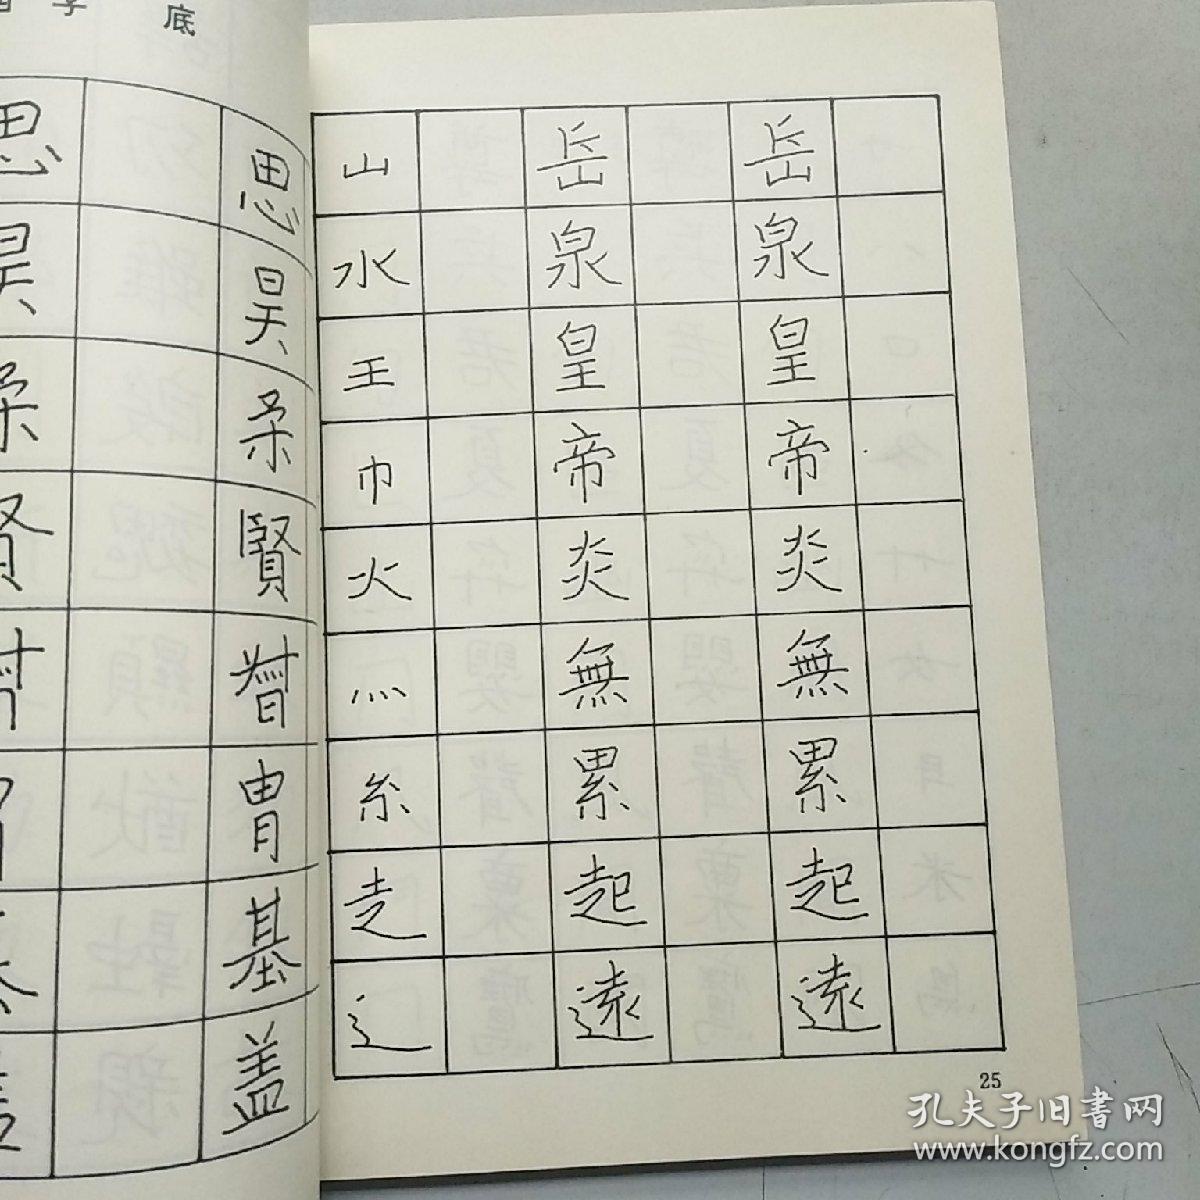 字 底
思 思
昊 昊
柔 柔
賢 賢
胄
基
盖 盖
山 岳 岳
水 泉 泉
王 皇 皇
巾 帝 帝
火 炎 炎
灬 無 無
糸 累 累
走 起 起
辶 遠 遠
25
孔夫子旧書网
www.kongfz.com